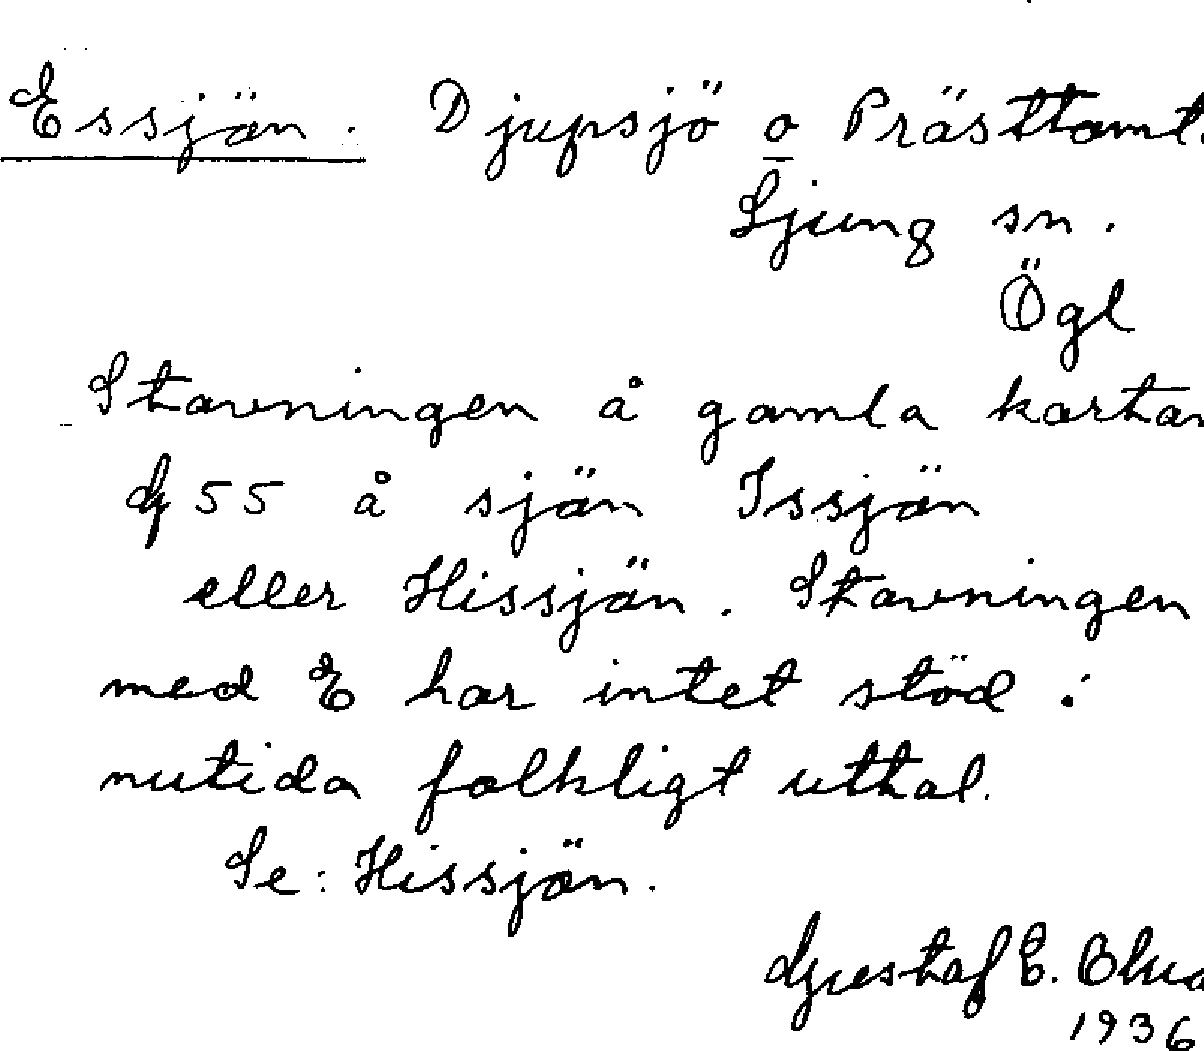 Essjön. Djupsjö o Prästtomt
Ljung sn.
Ögl
Stavningen å gamla kartan
G 55 å sjön Issjön
eller Hissjön. Stavningen
med E har intet stöd i
nutida folkligt uttal.
Se: Hissjön.
Gustaf E.
1936